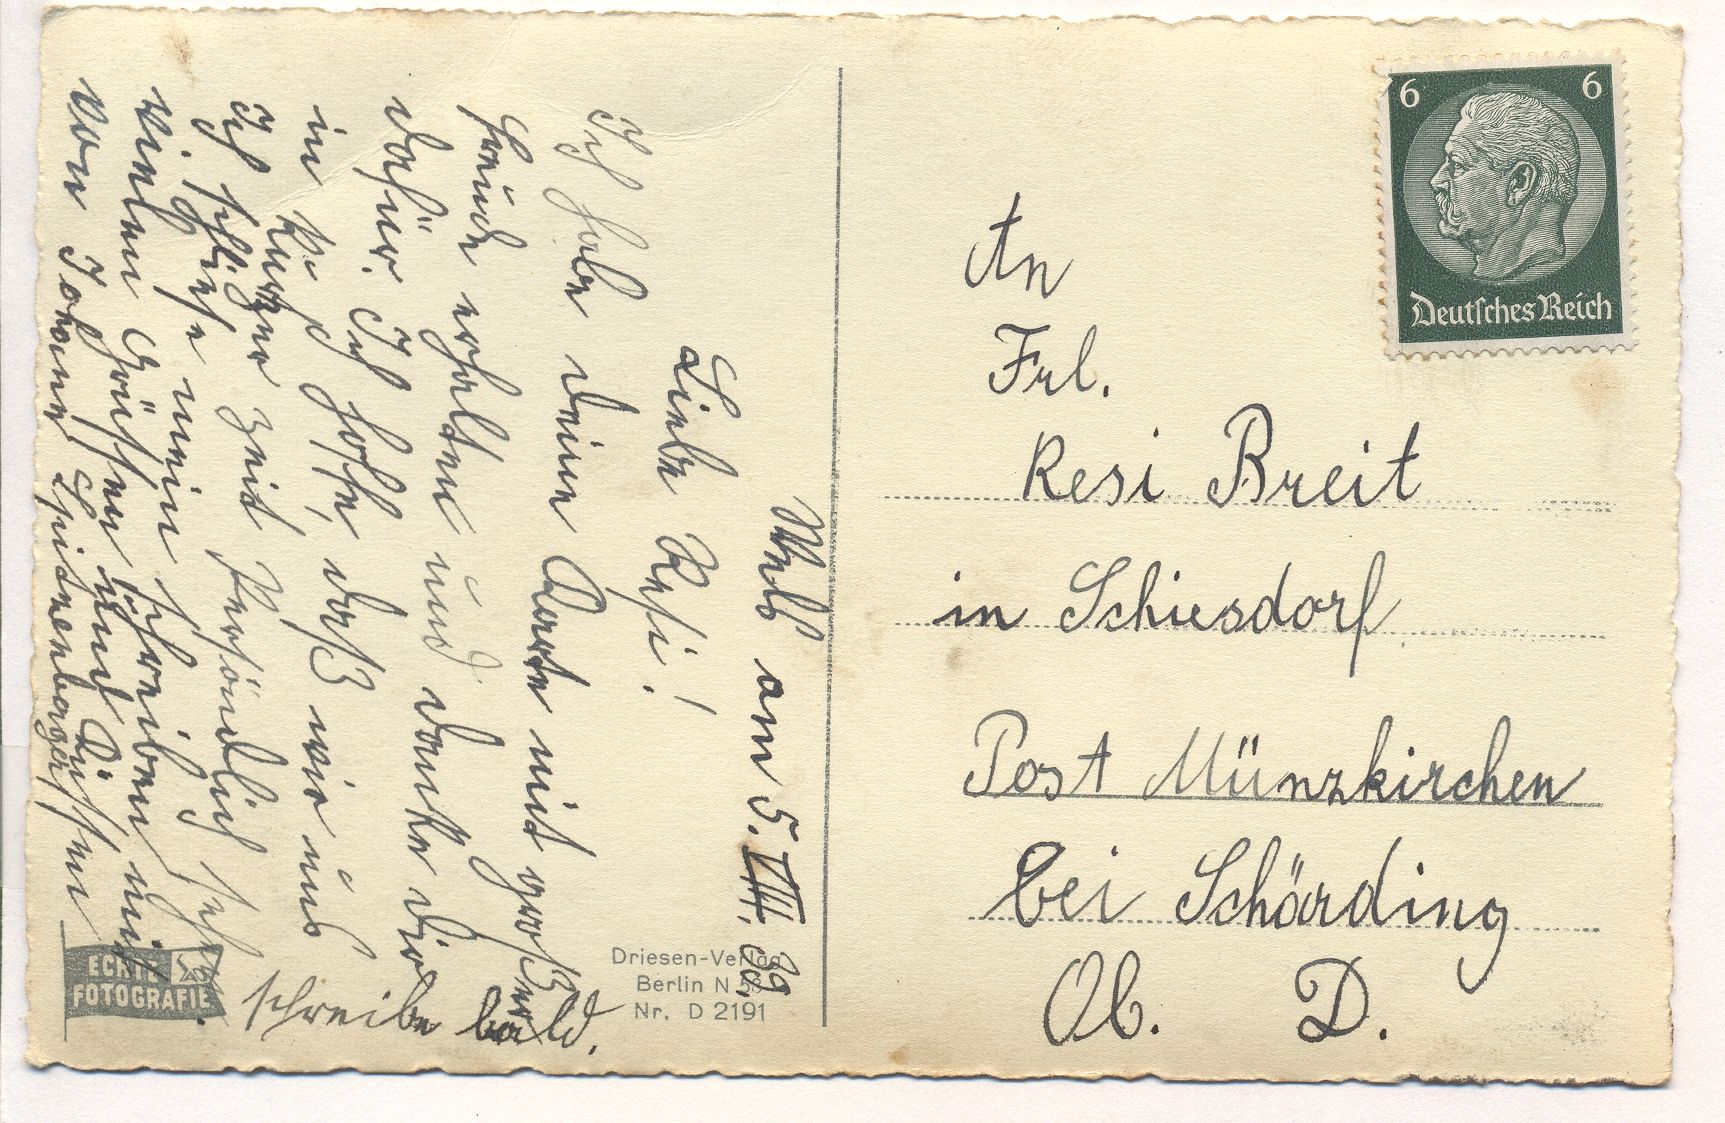 Wels am 5. VII. 39.
Liebe Resi!
Ich habe deine Karte mit großer
Freude erhalten und danke dir
dafür. Ich hoffe, daß wir uns
in kurzer Zeit persönlich sehn.
Ich schließe mein schreiben mit
vielen Grüßen und Küssen
von Johann
schreibe bald.
ECHTE
FOTOGRAFIE
Driesen-Verlag
Berlin N 58
Nr. D 2191
6 6
Deutsches Reich
An
Frl.
Resi Breit
in Schiesdorf
Post Münzkirchen
bei Schärding
Ob. D.